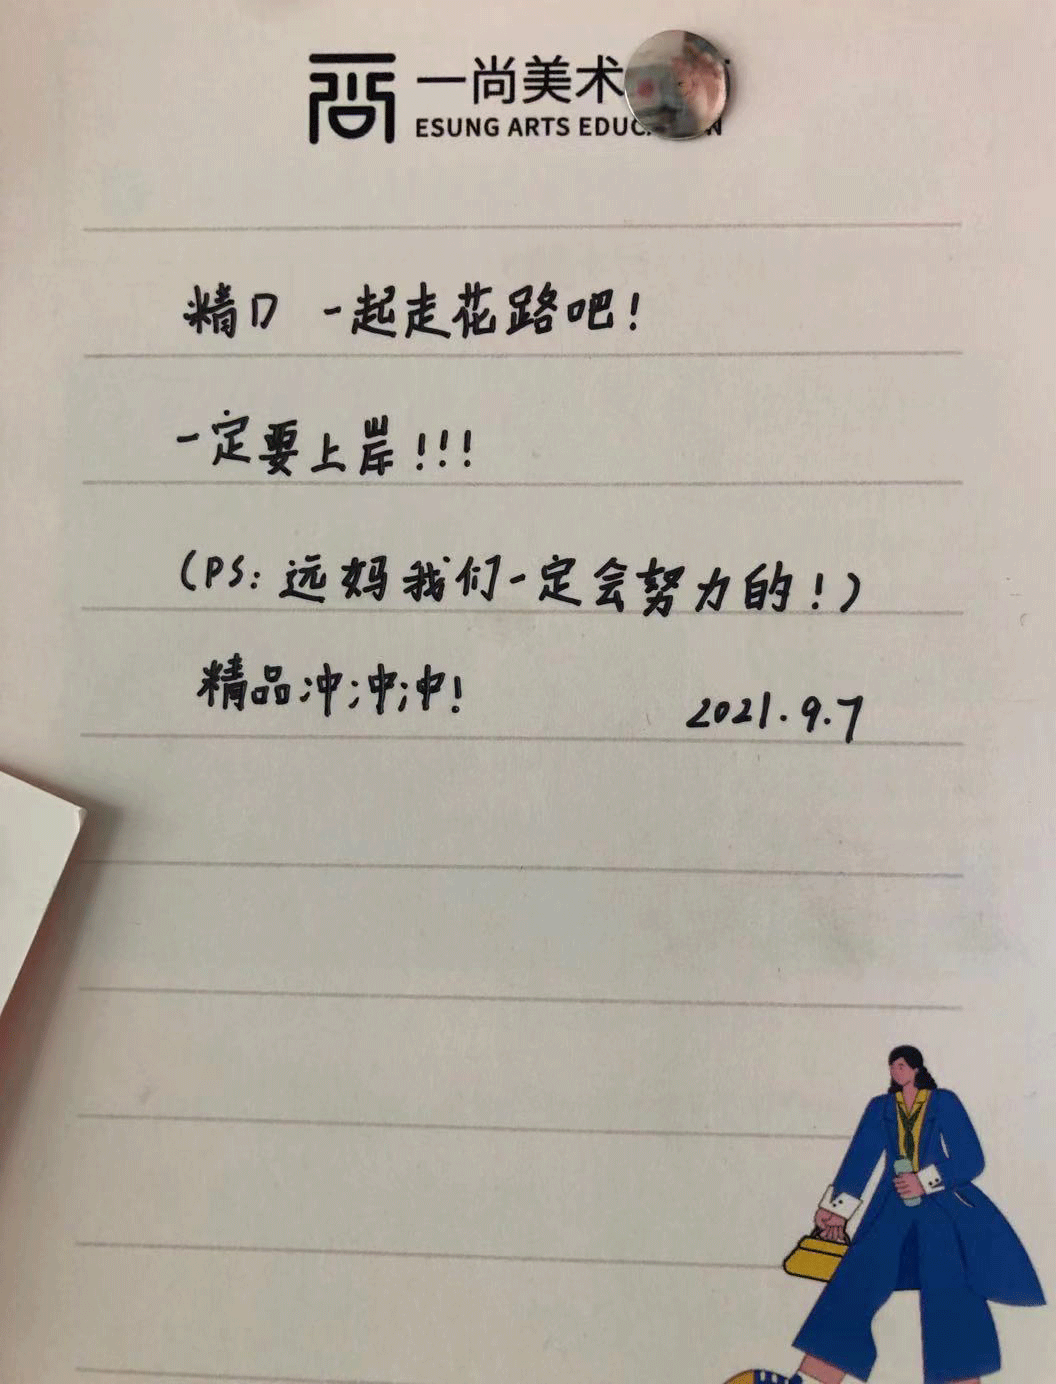 一尚美术
ESUNG ARTS EDUC
精口 一起走花路吧！
一定要上岸！！！
（PS：远妈我们一定会努力的！）
精品冲冲冲！
2021.9.7